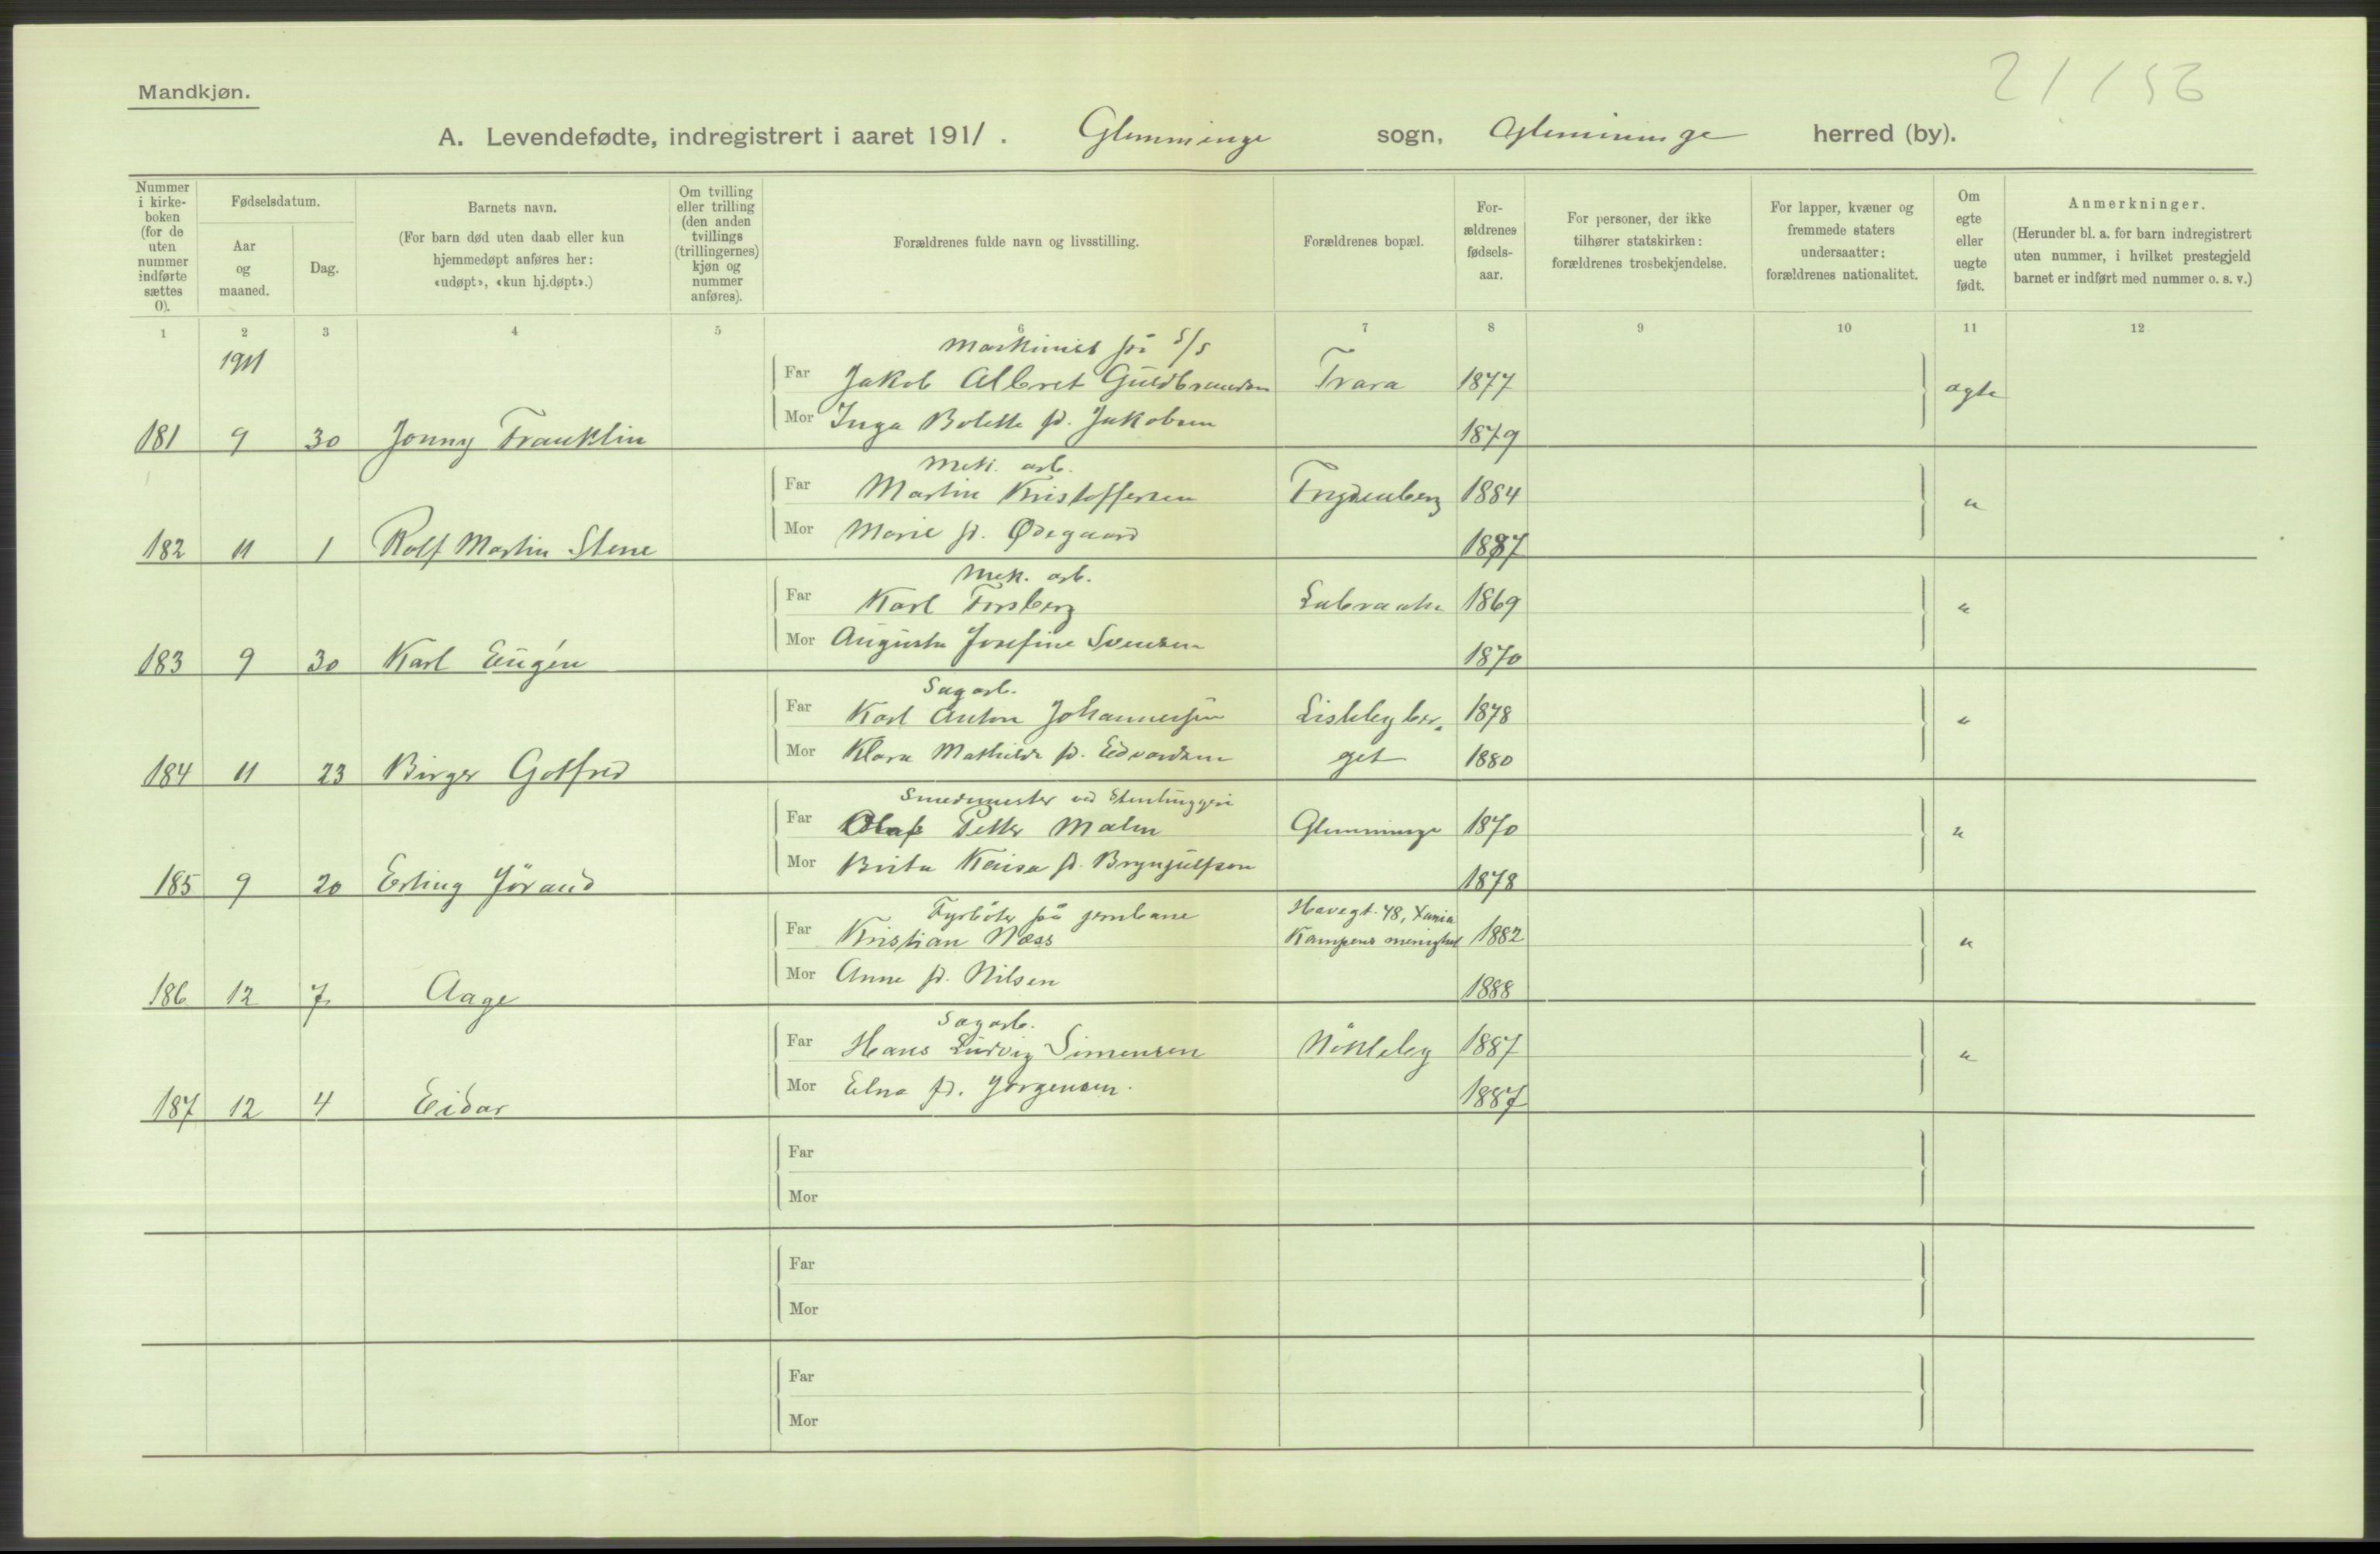 21/56
Mandkjøn.
A. Levendefødte, indregistrert i aaret 1911. Glemminge sogn, Glemminge herred (by).
Nummer i kirke-boken (for de uten nummer indførte sættes 0).
Fødselsdatum.
Aar og maaned.
Dag.
Barnets navn.
(For barn død uten daab eller kun hjemmedøpt anføres her: «udøpt», «kun hj.døpt».)
Om tvilling eller trilling (den anden tvillings (trillingernes) kjøn og nummer anføres).
Forældrenes fulde navn og livsstilling.
Forældrenes bopæl.
For-ældrenes fødsels-aar.
For personer, der ikke tilhører statskirken: forældrenes trosbekjendelse.
For lapper, kvæner og fremmede staters undersaatter: forældrenes nationalitet.
Om egte eller uegte født.
Anmerkninger.
(Herunder bl. a. for barn indregistrert uten nummer, i hvilket prestegjeld barnet er indført med nummer o. s. v.)
1 2 3 4 5 6 7 8 9 10 11 12
1911
Maskinist på S/S
Far Jakob Albret Guldbrandsen Trara 1877 ægte
Mor Inga Bolette f. Jakobsen 1879
181 9 30 Jonny Franklin
Mek. arb.
Far Martin Kristoffersen Trydenberg 1884 "
Mor Marie f. Ødegaard 1887
182 11 1 Rolf Martin Stene
Mek. arb.
Far Karl Forsberg Labraaten 1869 "
Mor Augusta Josefine Svensen 1870
183 9 30 Karl Eugén
Sagarb.
Far Karl Anton Johannessen Lislebyber- 1878 "
Mor Klara Mathilde f. Edvardsen get 1880
184 11 23 Birger Gotfred
Smedmester ved Stenhuggeri
Far Olaf Petter Malm Glemminge 1870 "
Mor Brita Kaisa f. Brynjulfson 1878
185 9 20 Erling Jørand
Fyrbøter på jernbane Havegt. 48, Xania
Far Kristian Næss Kampens menighet 1882 "
Mor Anne f. Nilsen 1888
186 12 7 Aage
Sagarb.
Far Hans Ludvig Simensen Nökleby 1887 "
Mor Elna f. Jørgensen. 1887
187 12 4 Eidar
Far
Mor
Far
Mor
Far
Mor